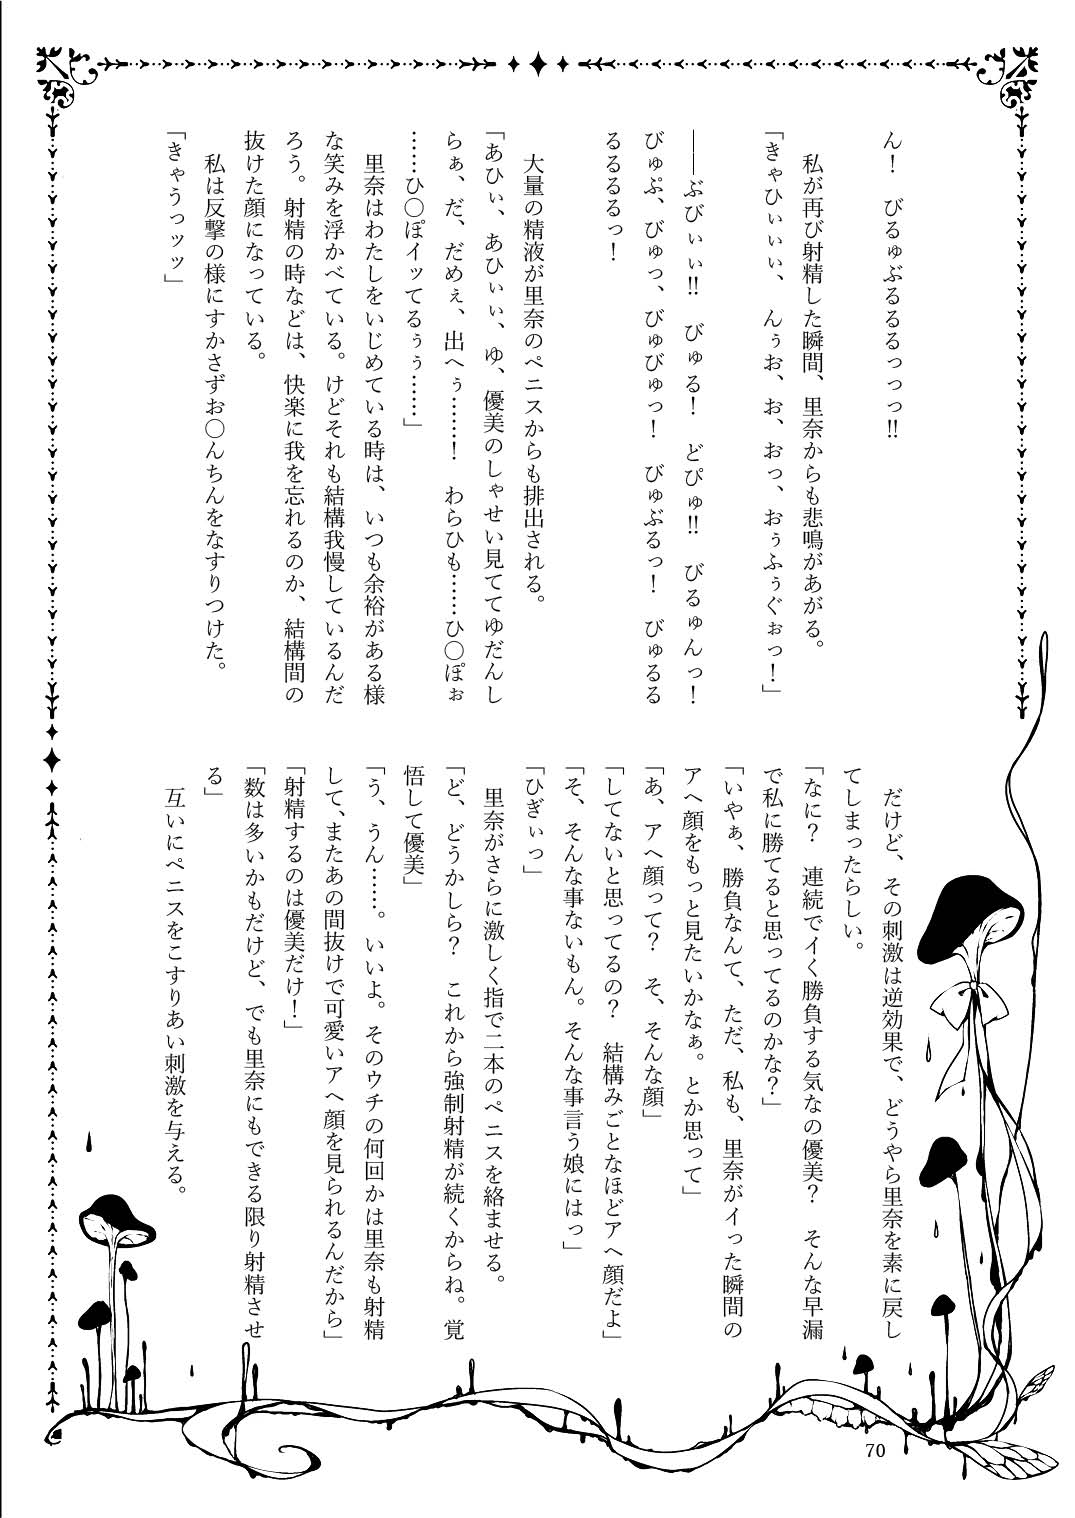 ん！　びるゅぶるるるっっっ!!
　私が再び射精した瞬間、里奈からも悲鳴があがる。
「きゃひぃぃぃ、んぅお、お、おっ、おぅふぅぐぉっ！」
――ぶびぃぃ!!　びゅる！　どぴゅ!!　びるゅんっ！
びゅぷ、びゅっ、びゅびゅっ！　びゅぶるっ！　びゅるる
るるるるっ！
　大量の精液が里奈のペニスからも排出される。
「あひぃ、あひぃぃ、ゆ、優美のしゃせい見ててゆだんし
らぁ、だ、だめぇ、出へぅ……！　わらひも……ひ〇ぽぉ
……ひ〇ぽイッてるぅぅ……」
　里奈はわたしをいじめている時は、いつも余裕がある様
な笑みを浮かべている。けどそれも結構我慢しているんだ
ろう。射精の時などは、快楽に我を忘れるのか、結構間の
抜けた顔になっている。
　私は反撃の様にすかさずお〇んちんをなすりつけた。
「きゃうっッッ」
　だけど、その刺激は逆効果で、どうやら里奈を素に戻し
てしまったらしい。
「なに？　連続でイく勝負する気なの優美？　そんな早漏
で私に勝てると思ってるのかな？」
「いやぁ、勝負なんて、ただ、私も、里奈がイった瞬間の
アヘ顔をもっと見たいかなぁ。とか思って」
「あ、アヘ顔って？　そ、そんな顔」
「してないと思ってるの？　結構みごとなほどアヘ顔だよ」
「そ、そんな事ないもん。そんな事言う娘にはっ」
「ひぎぃっ」
　里奈がさらに激しく指で二本のペニスを絡ませる。
「ど、どうかしら？　これから強制射精が続くからね。覚
悟して優美」
「う、うん……。いいよ。そのウチの何回かは里奈も射精
して、またあの間抜けで可愛いアヘ顔を見られるんだから」
「射精するのは優美だけ！」
「数は多いかもだけど、でも里奈にもできる限り射精させ
る」
　互いにペニスをこすりあい刺激を与える。
70